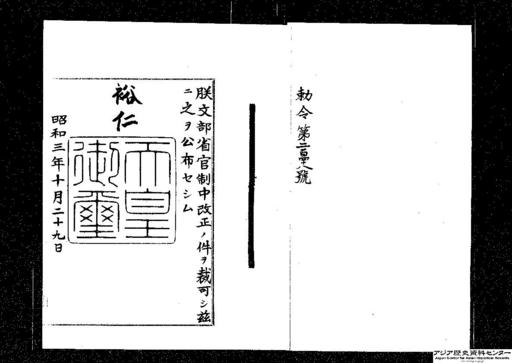 勅令第號
朕文部省官制中改正ノ件ヲ裁可シ茲
ニ之ヲ公布セシム
裕仁
天皇
御璽
昭和三年十月二十九日
アジア歴史資料センター
Japan Center for Asian Historical Records